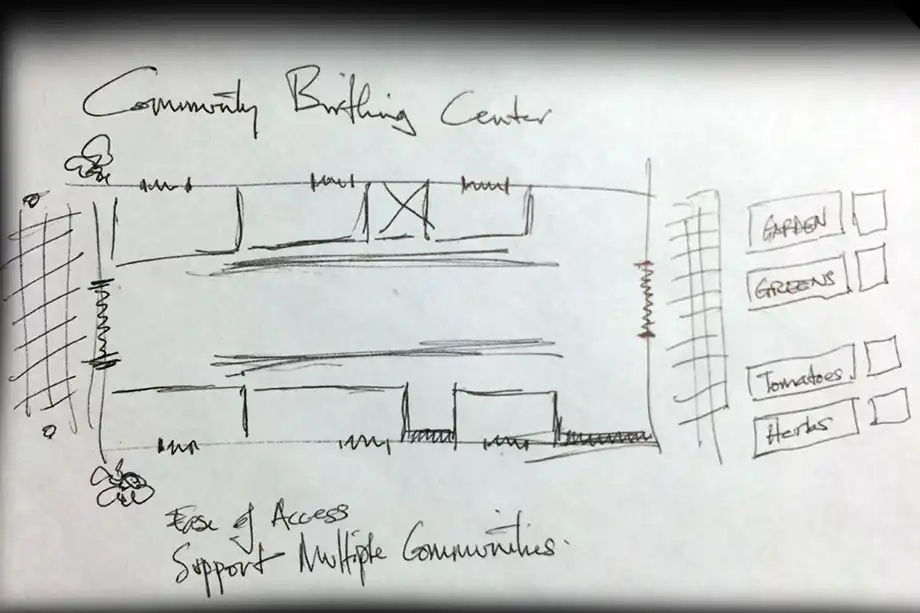 Community Birthing Center
GARDEN
GREENS
Tomatoes
Herbs
Ease of Access
Support Multiple Communities.